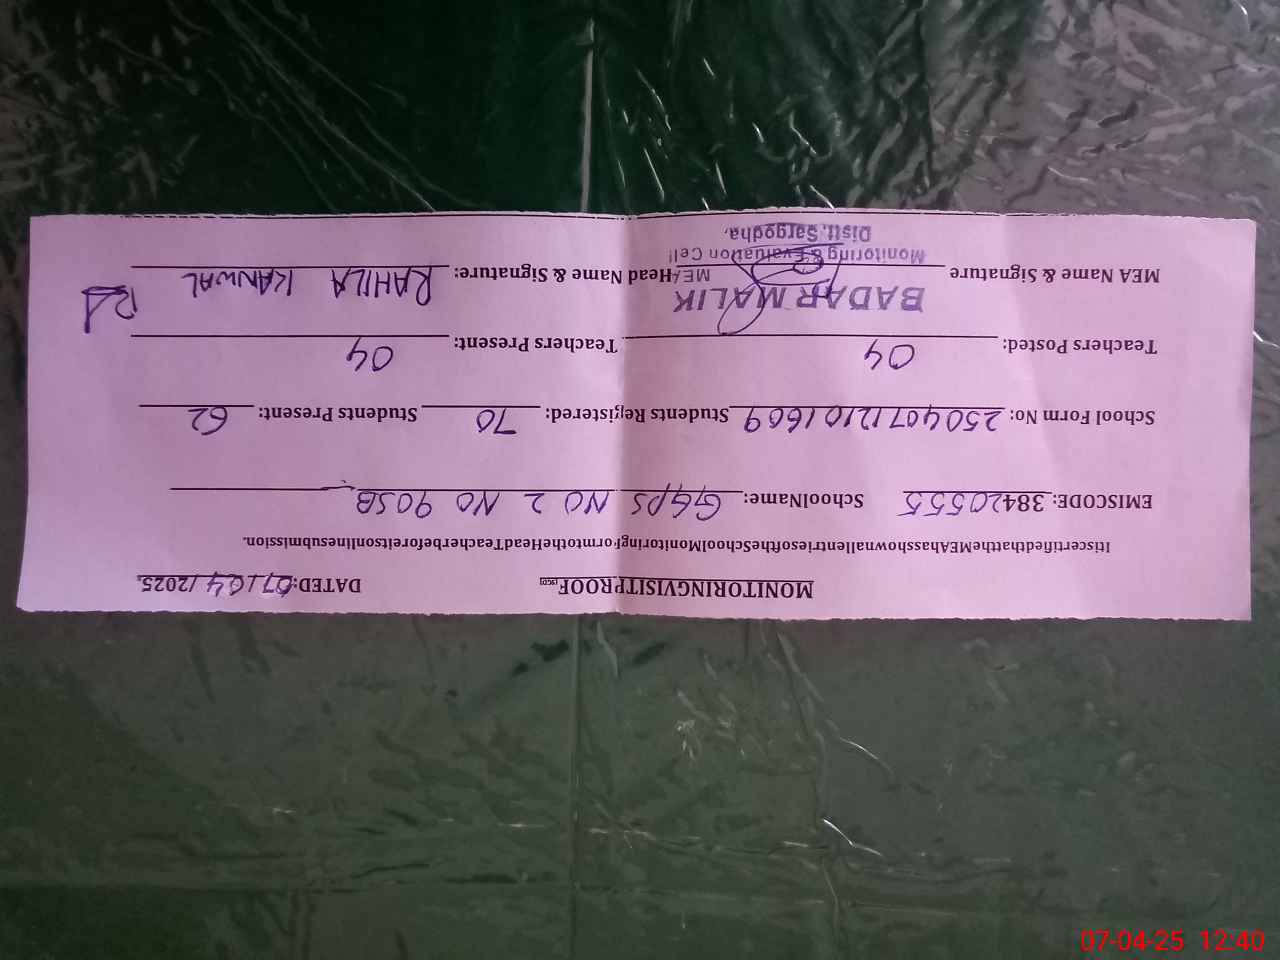 MONITORINGVISITPROOF DATED:07/04/2025.
ItiscertifiedthattheMEAhasshownallentriesoftheSchoolMonitoringFormtotheHeadTeacherbeforeitsonlinesubmission.
EMISCODE: 38420555 SchoolName: GGPS NO 2 NO 90SB
School Form No: 25040712101609 Students Registered: 70 Students Present: 62
Teachers Posted: 04 Teachers Present: 04
MEA Name & Signature BADAR MALIK Head Name & Signature: RAHILA KANWAL
MEA
Monitoring & Evaluation Cell
Distt. Sargodha.
07-04-25 12:40